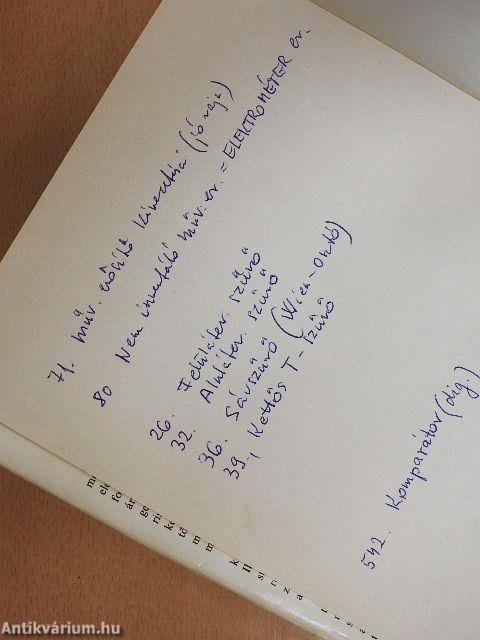 71. műv. erősítő kivezetései (jó rajz)
80 Nem invertáló műv. er. = ELEKTROMÉTER er.
26. Felüláter. szűrő
32. Aluláter. szűrő
36. Sávszűrő (Wien-osztó)
39. Kettős T-szűrő
542. Komparátor (dig.)
Antikvárium.hu